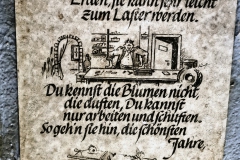 Erden, sie kann sehr leicht
zum Laster werden.
Du kennst die Blumen nicht,
die duften, Du kannst
nur arbeiten und schuften.
So geh'n sie hin, die schönsten
Jahre,